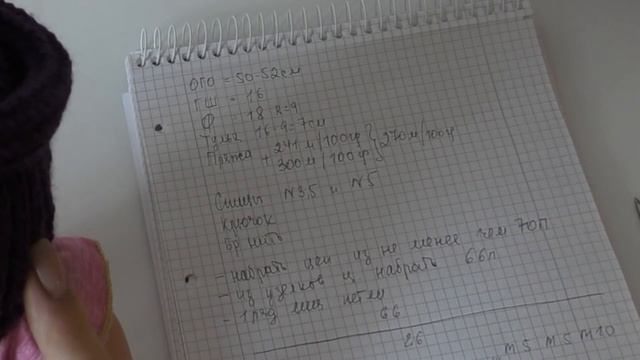 ОГО = 50-52см
ГШ = 16
Ф = 18 R=9
Тулья 16-9=7см
Пряжа 241 м/100гр } 270м/100гр
+ 300м/100гр
Спицы N3,5 и N5
крючок
Бр нить
- набрать цеп из не менее чем 70п
- из узелков ц набрать 66п
- 1 ряд лиц петли
66
26
M5 M5 M10